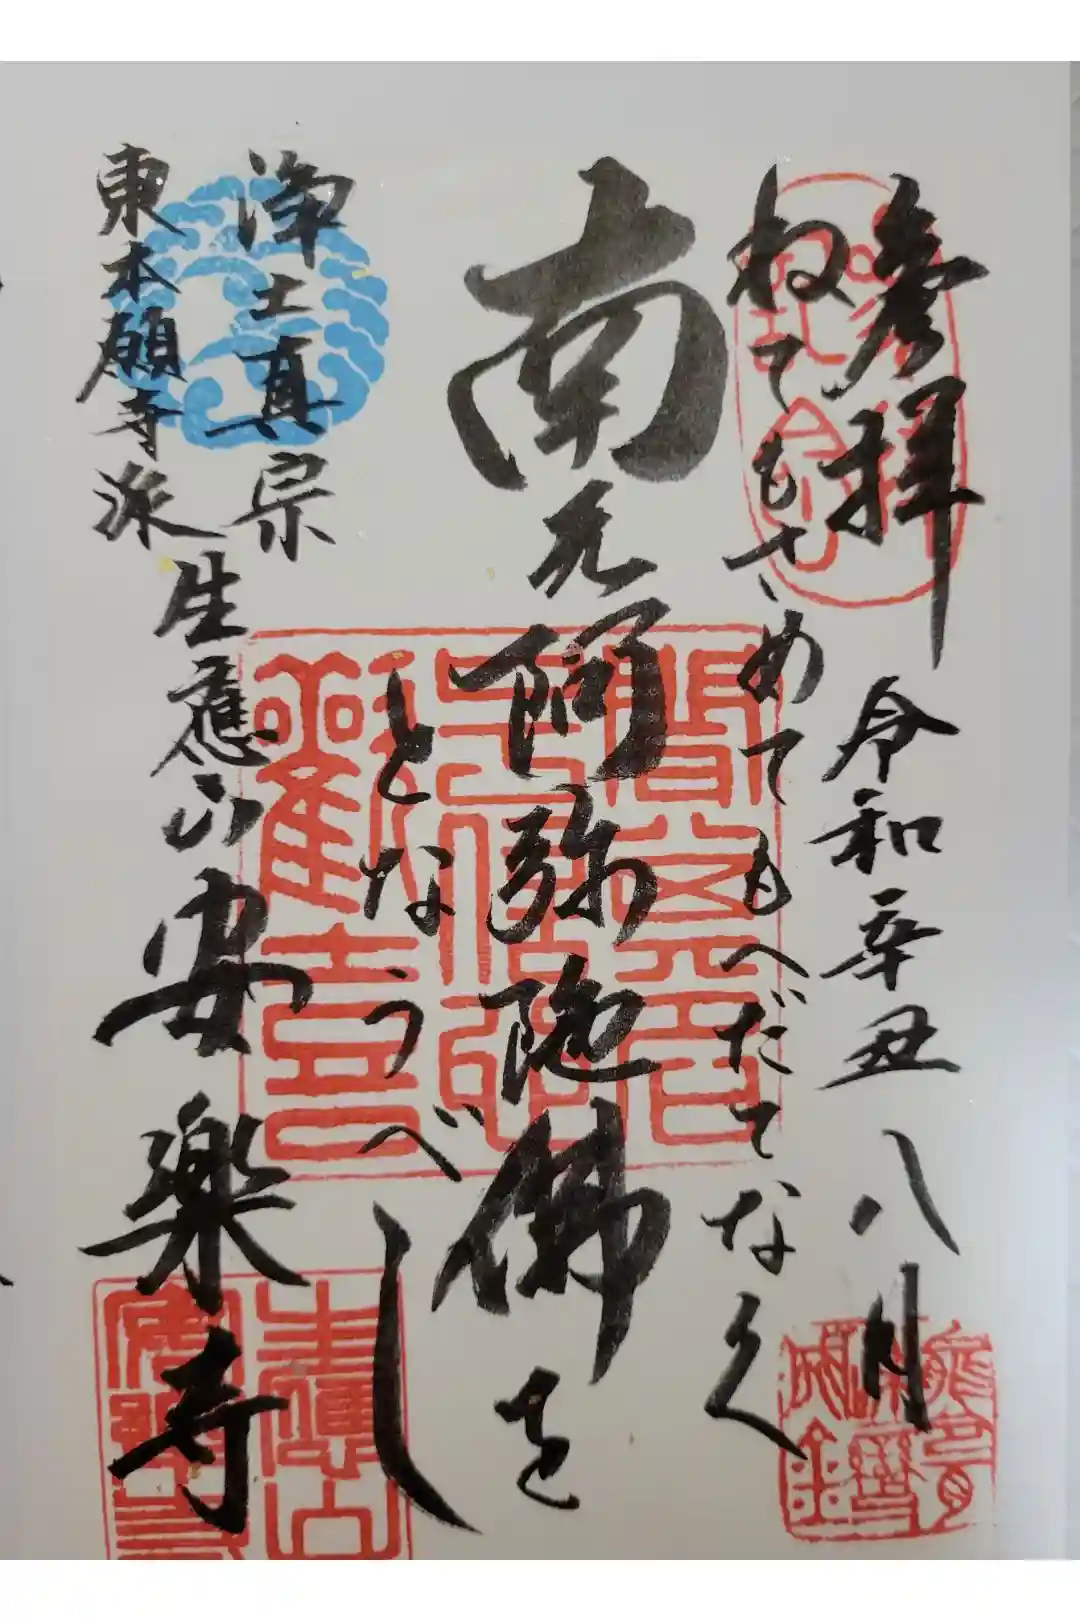 参拝 令和辛丑 八月
ねてもさめてもへだてなく
南无阿弥陀佛を
となうべし
浄土真宗
東本願寺派
生應山 安楽寺